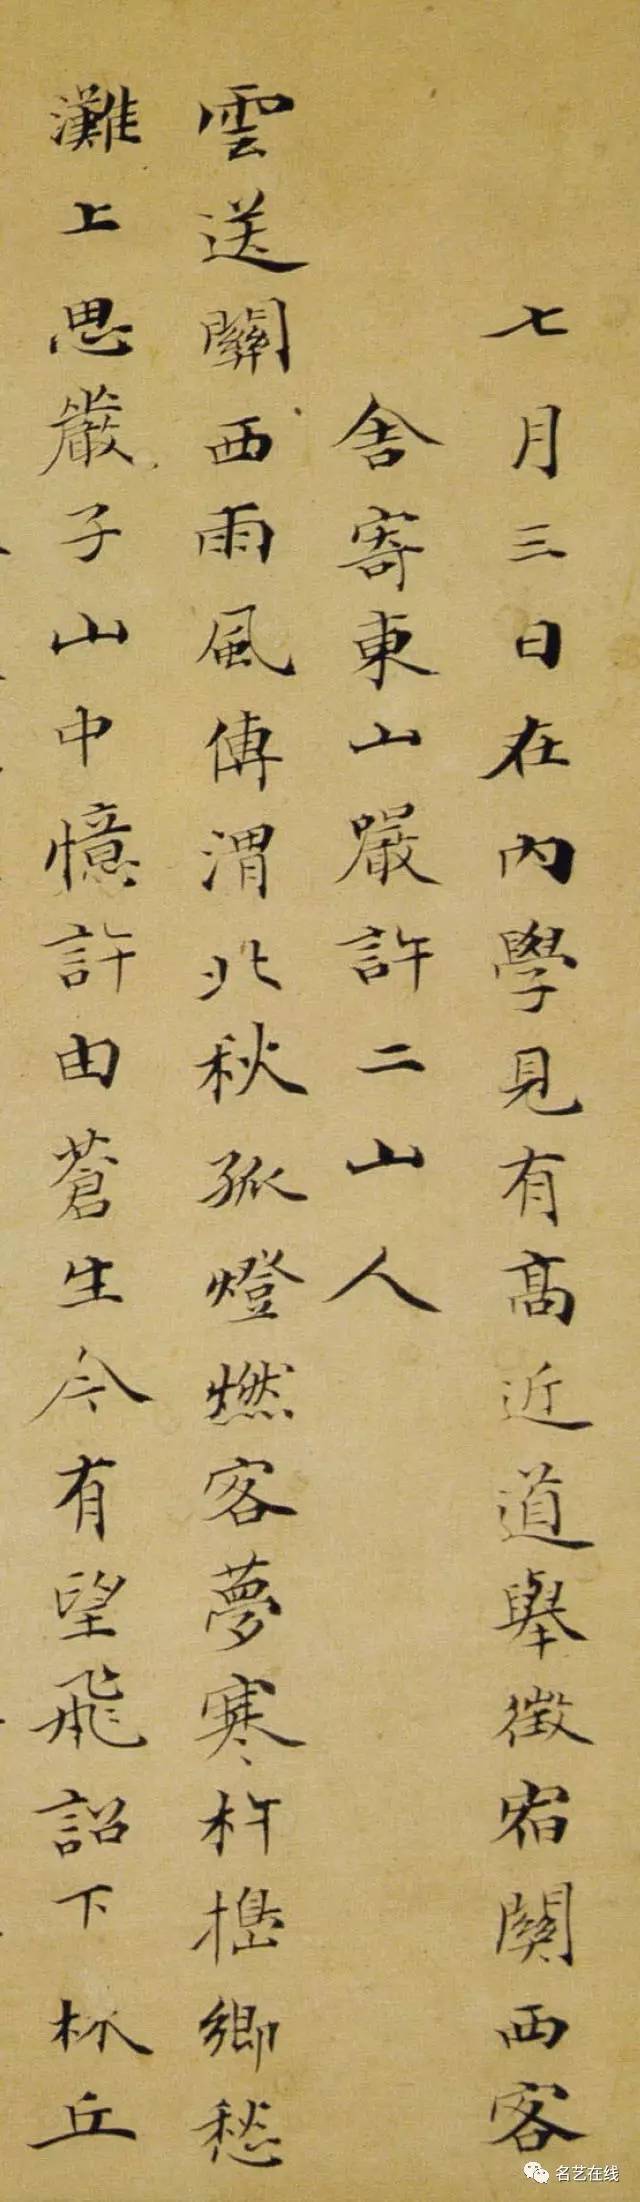 七月三日在內學見有高近道舉徵宿關西客
舍寄東山嚴許二山人
雲送關西雨風傳渭北秋孤燈燃客夢寒杵搗鄉愁
灘上思嚴子山中憶許由蒼生今有望飛詔下林丘
名艺在线